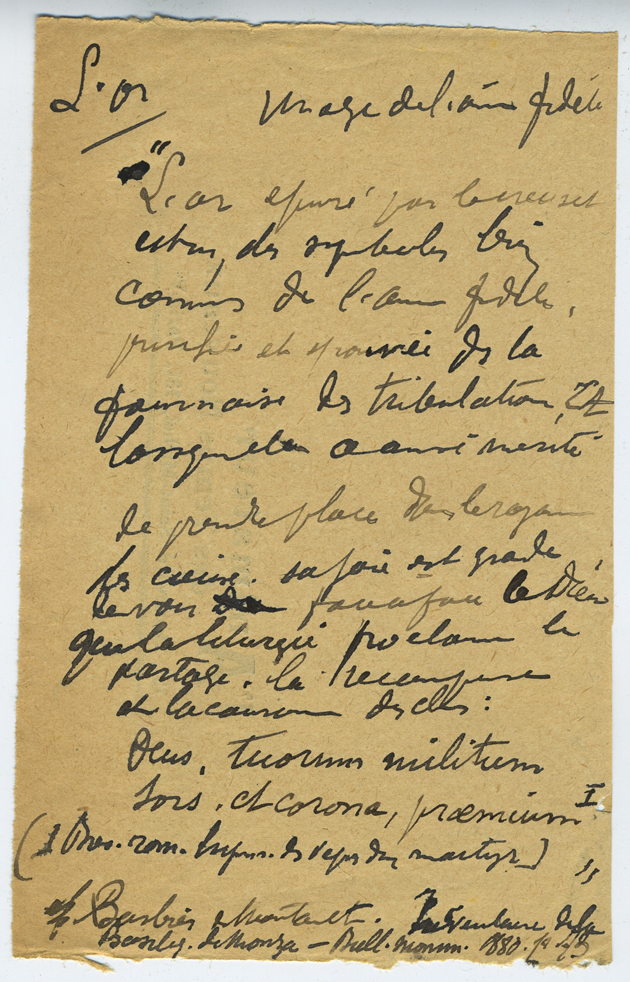 L'or image de l'âme fidèle
"L'or épuré par le creuset
est un des symboles bien
connus de l'âme fidèle,
purifiée et éprouvée ds la
fournaise des tribulations. Et
lorsqu'elle a mérité
de prendre place dans le royaume
des cieux, sa joie est grande
de voir face à face le Dieu
que la liturgie proclame le
partage, la récompense
et la couronne des élus :
Deus, tuorum militum
Sors, et corona, præmium I
(1 Brev. rom. hymn. des vêpres d'un martyr) "
cf Barbier de Montault. Inventaire de la
Basiliq. de Monza — Bull. monum. 1880.